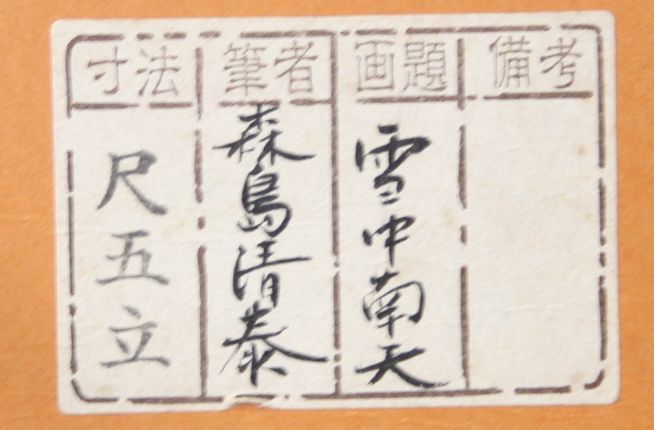 寸法
筆者
画題
備考
尺五立
森島清泰
雪中南天